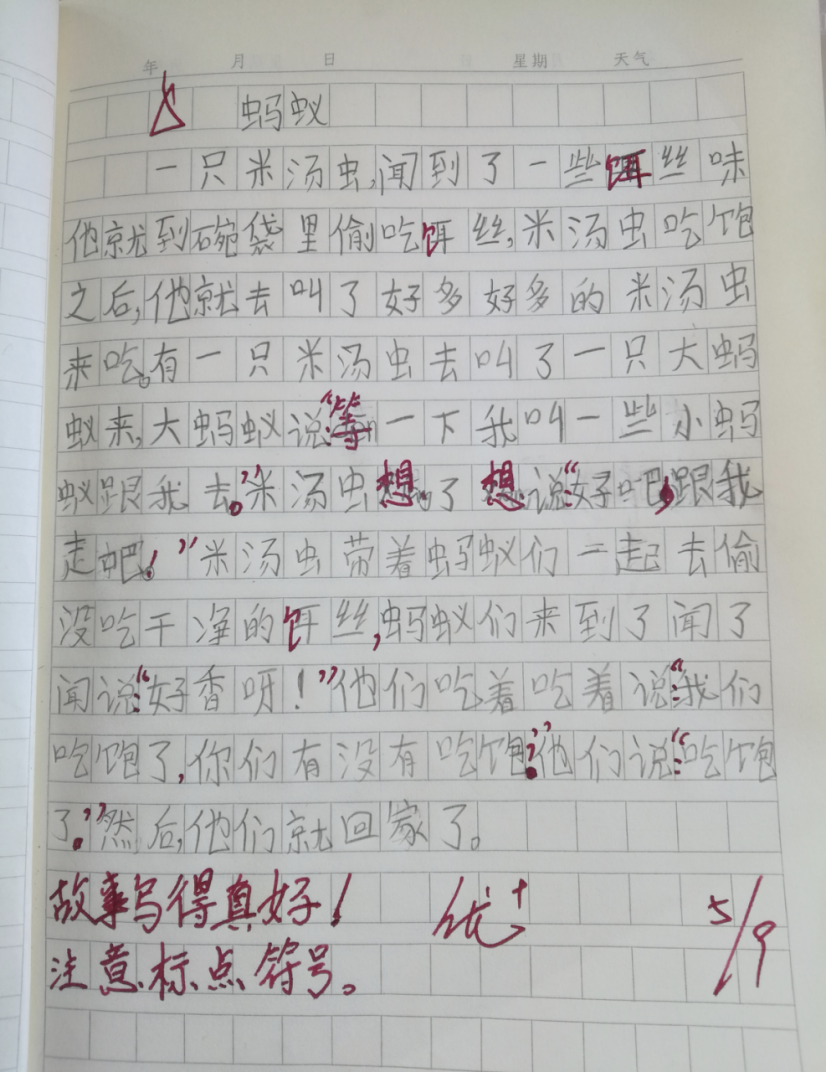 年 月 日 星期 天气
蚂蚁
一只米汤虫,闻到了一些饵丝味
他就到碗袋里偷吃饵丝,米汤虫吃饱
之后,他就去叫了好多好多的米汤虫
来吃。有一只米汤虫去叫了一只大蚂
蚁来,大蚂蚁说“等一下我叫一些小蚂
蚁跟我去。”米汤虫想了想说:“好吧,跟我
走吧!”米汤虫带着蚂蚁们一起去偷
没吃干净的饵丝,蚂蚁们来到了闻了
闻说:“好香呀!”他们吃着吃着说:“我们
吃饱了,你们有没有吃饱?”他们说:“吃饱
了。”然后,他们就回家了。
故事写得真好! 优+ 5/9
注意标点符号。